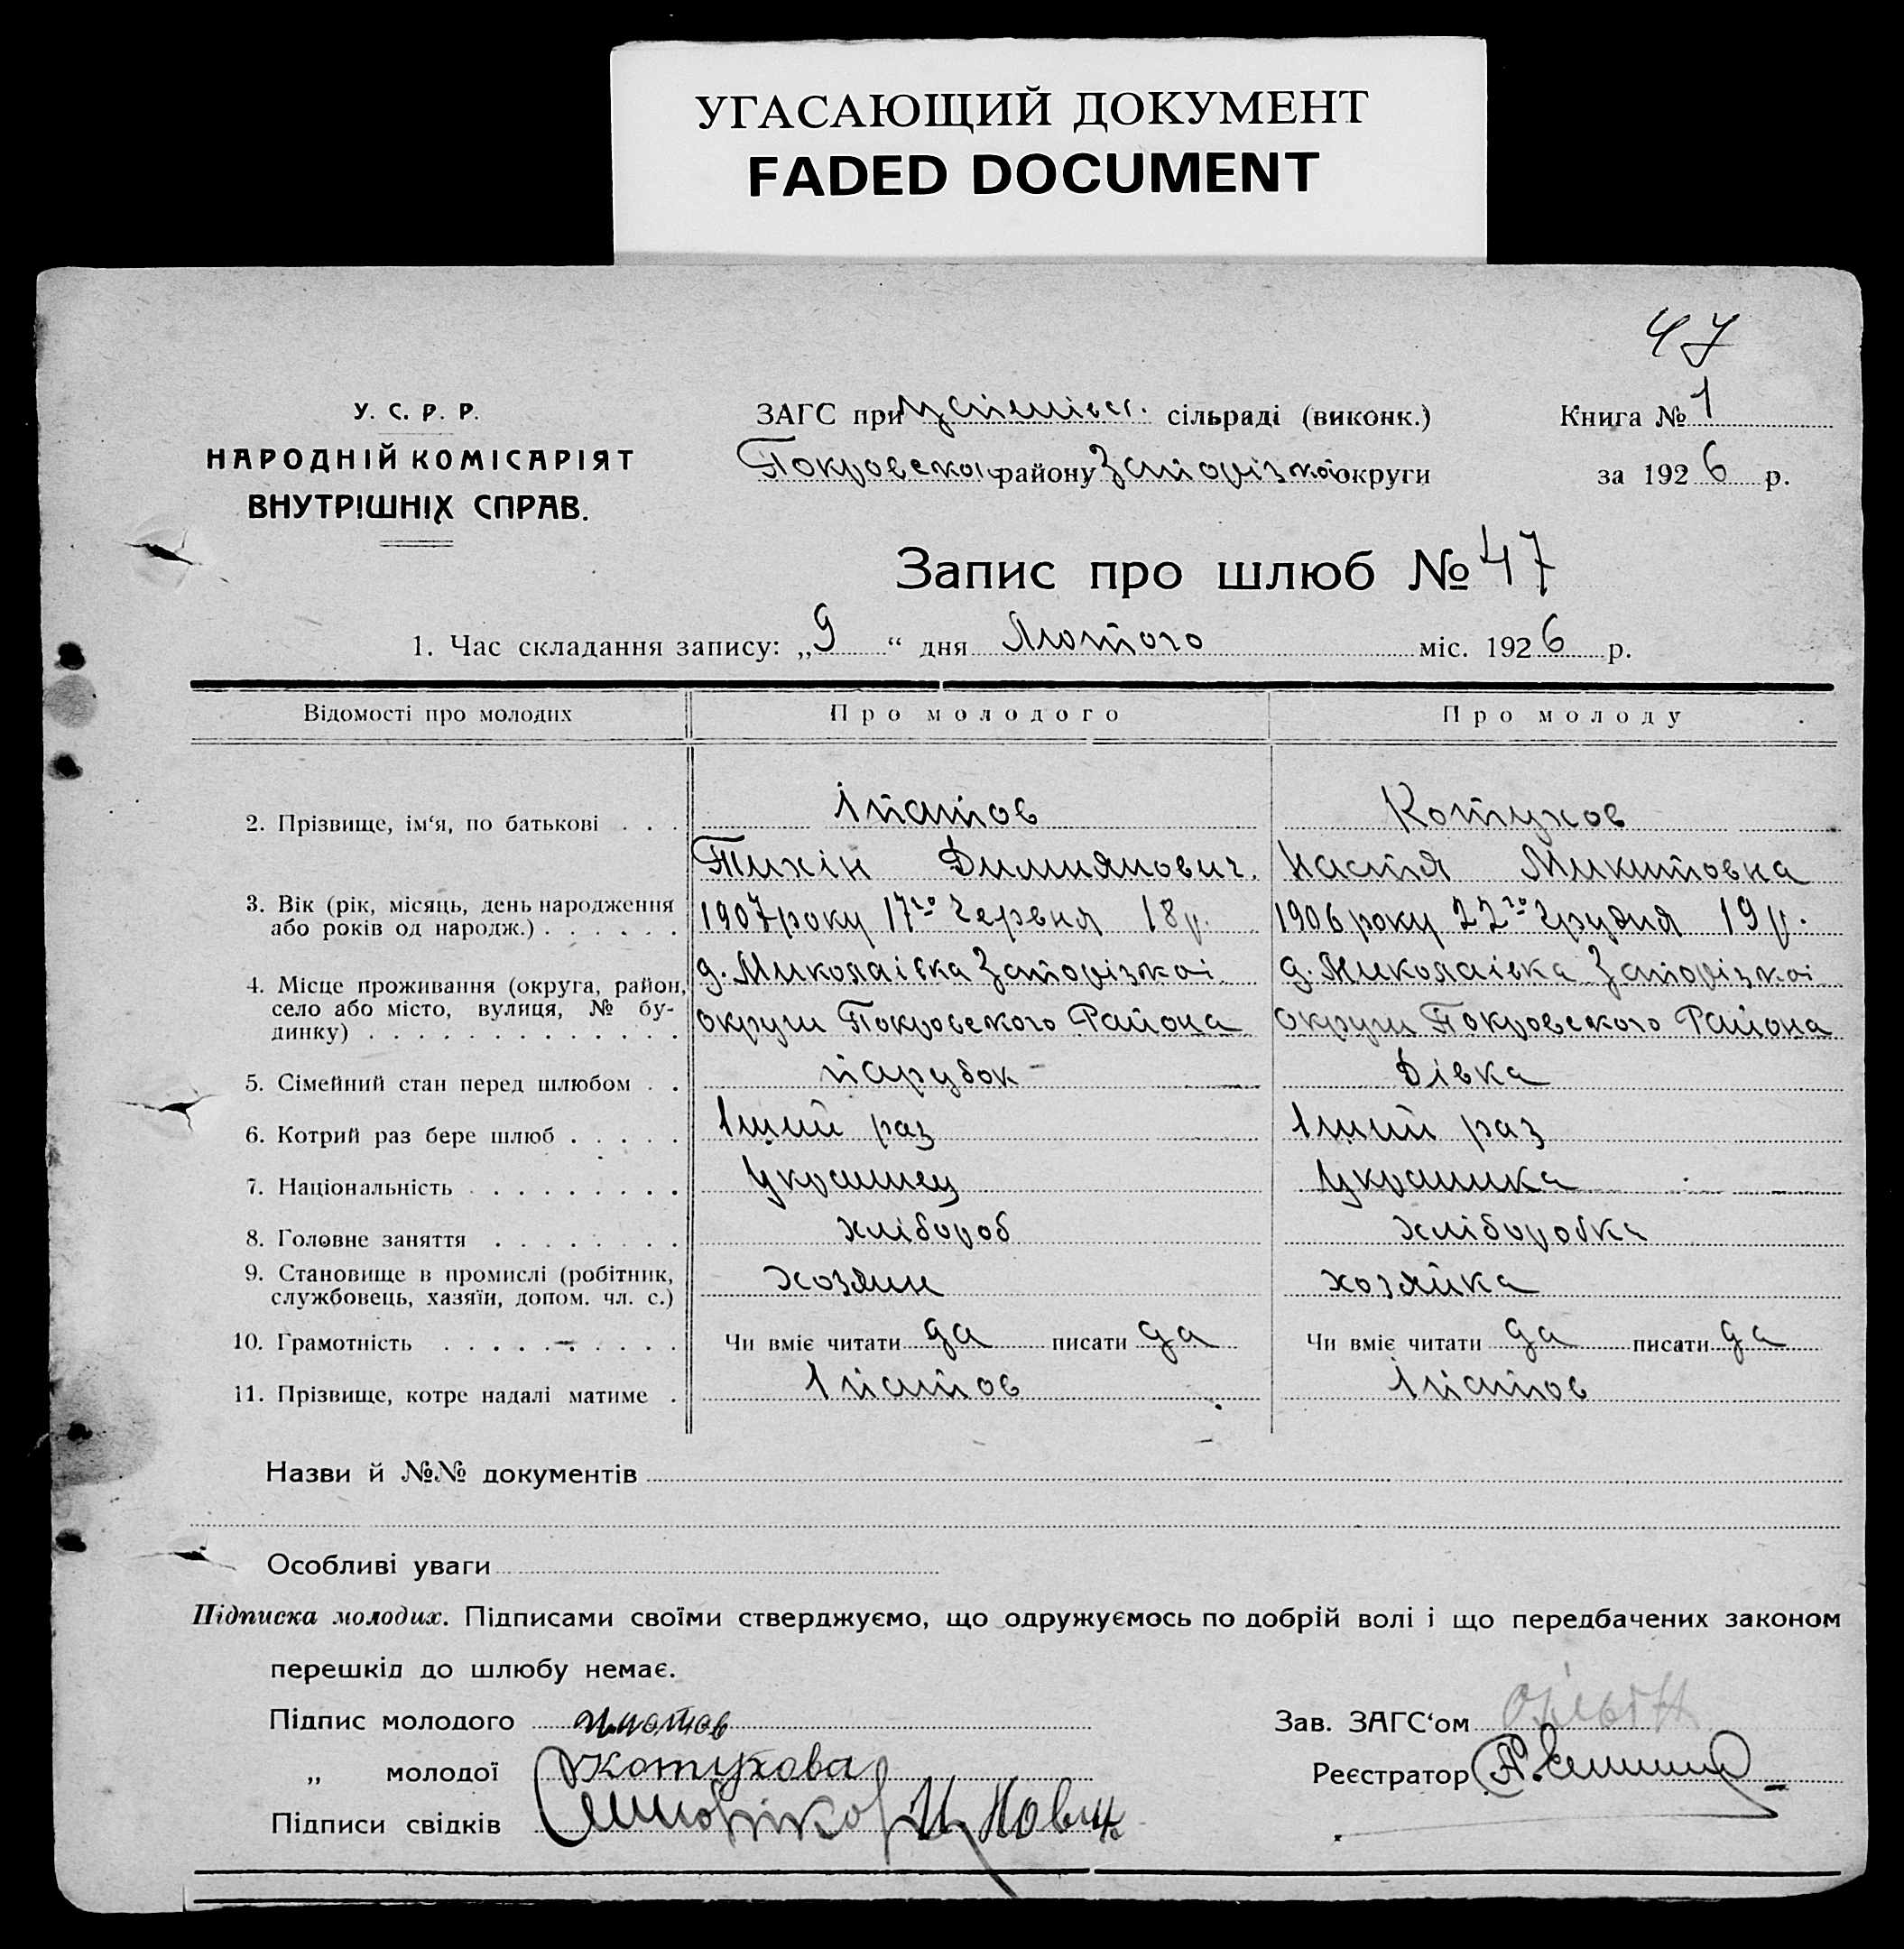 УГАСАЮЩИЙ ДОКУМЕНТ
FADED DOCUMENT
47
У. С. Р. Р.
НАРОДНІЙ КОМІСАРІЯТ
ВНУТРІШНІХ СПРАВ.
ЗАГС при Успенівск. сільраді (виконк.)
Покровского району Запорізкої округи
Книга № 1
за 1926 р.
Запис про шлюб № 47
1. Час складання запису: „9“ дня Лютого міс. 1926 р.
Відомості про молодих Про молодого Про молоду
2. Прізвище, ім‘я, по батькові . . . Іпатов Котухов
Тихін Димиянович. Настя Микитовна
3. Вік (рік, місяць, день народження
або років од народж.) . . . . . . 1907 року 17го Червня 18 р. 1906 року 22го Грудня 19 р.
4. Місце проживання (округа, район, д. Миколаівка Запорізкоі д. Миколаівка Запорізкоі
село або місто, вулиця, № бу- округи Покровского Района округи Покровского Района
динку) . . . . . . . . . . . . .
5. Сімейний стан перед шлюбом . . парубок Дівка
6. Котрий раз бере шлюб . . . . . 1ший раз 1ший раз
7. Національність . . . . . . . . . Украінец Украінка
8. Головне заняття . . . . . . . . хлібороб хліборобка
9. Становище в промислі (робітник,
службовець, хазяїн, допом. чл. с.) хозяин хозяйка
10. Грамотність . . . . . . . . . Чи вміє читати да писати да Чи вміє читати да писати да
11. Прізвище, котре надалі матиме . Іпатов Іпатов
Назви й №№ документів
Особливі уваги
Підписка молодих. Підписами своїми стверджуємо, що одружуємось по добрій волі і що передбачених законом
перешкід до шлюбу немає.
Підпис молодого Ипатов
Зав. ЗАГС‘ом
„ молодої Котухова
Реєстратор
Підписи свідків